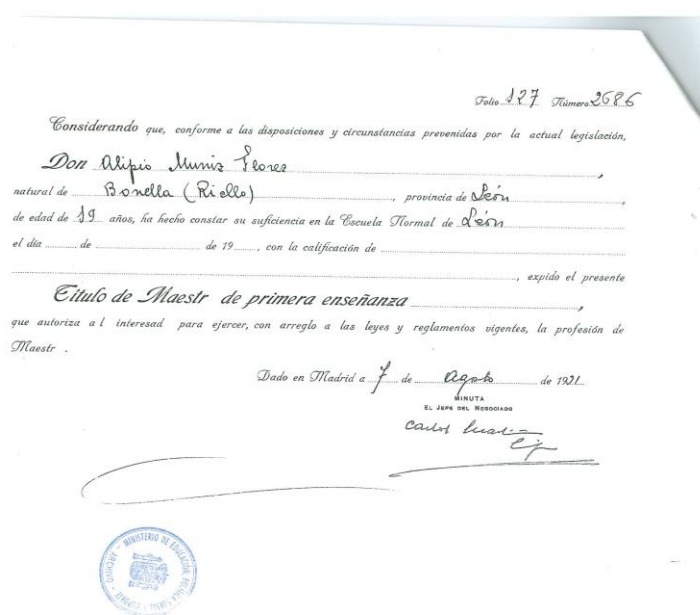 Folio 127 Número 2686
Considerando que, conforme a las disposiciones y circunstancias prevenidas por la actual legislación,
Don Alipio Muniz Florez,
natural de Bonella (Riello), provincia de León,
de edad de 19 años, ha hecho constar su suficiencia en la Escuela Normal de León
el día de de 19, con la calificación de
, expido el presente
Título de Maestr de primera enseñanza,
que autoriza a l interesad para ejercer, con arreglo a las leyes y reglamentos vigentes, la profesión de
Maestr .
Dado en Madrid a 7 de Agosto de 1921
MINUTA
EL JEFE DEL NEGOCIADO
Carlos
MINISTERIO DE EDUCACIÓN, POLÍTICA SOCIAL Y DEPORTE - ARCHIVO -